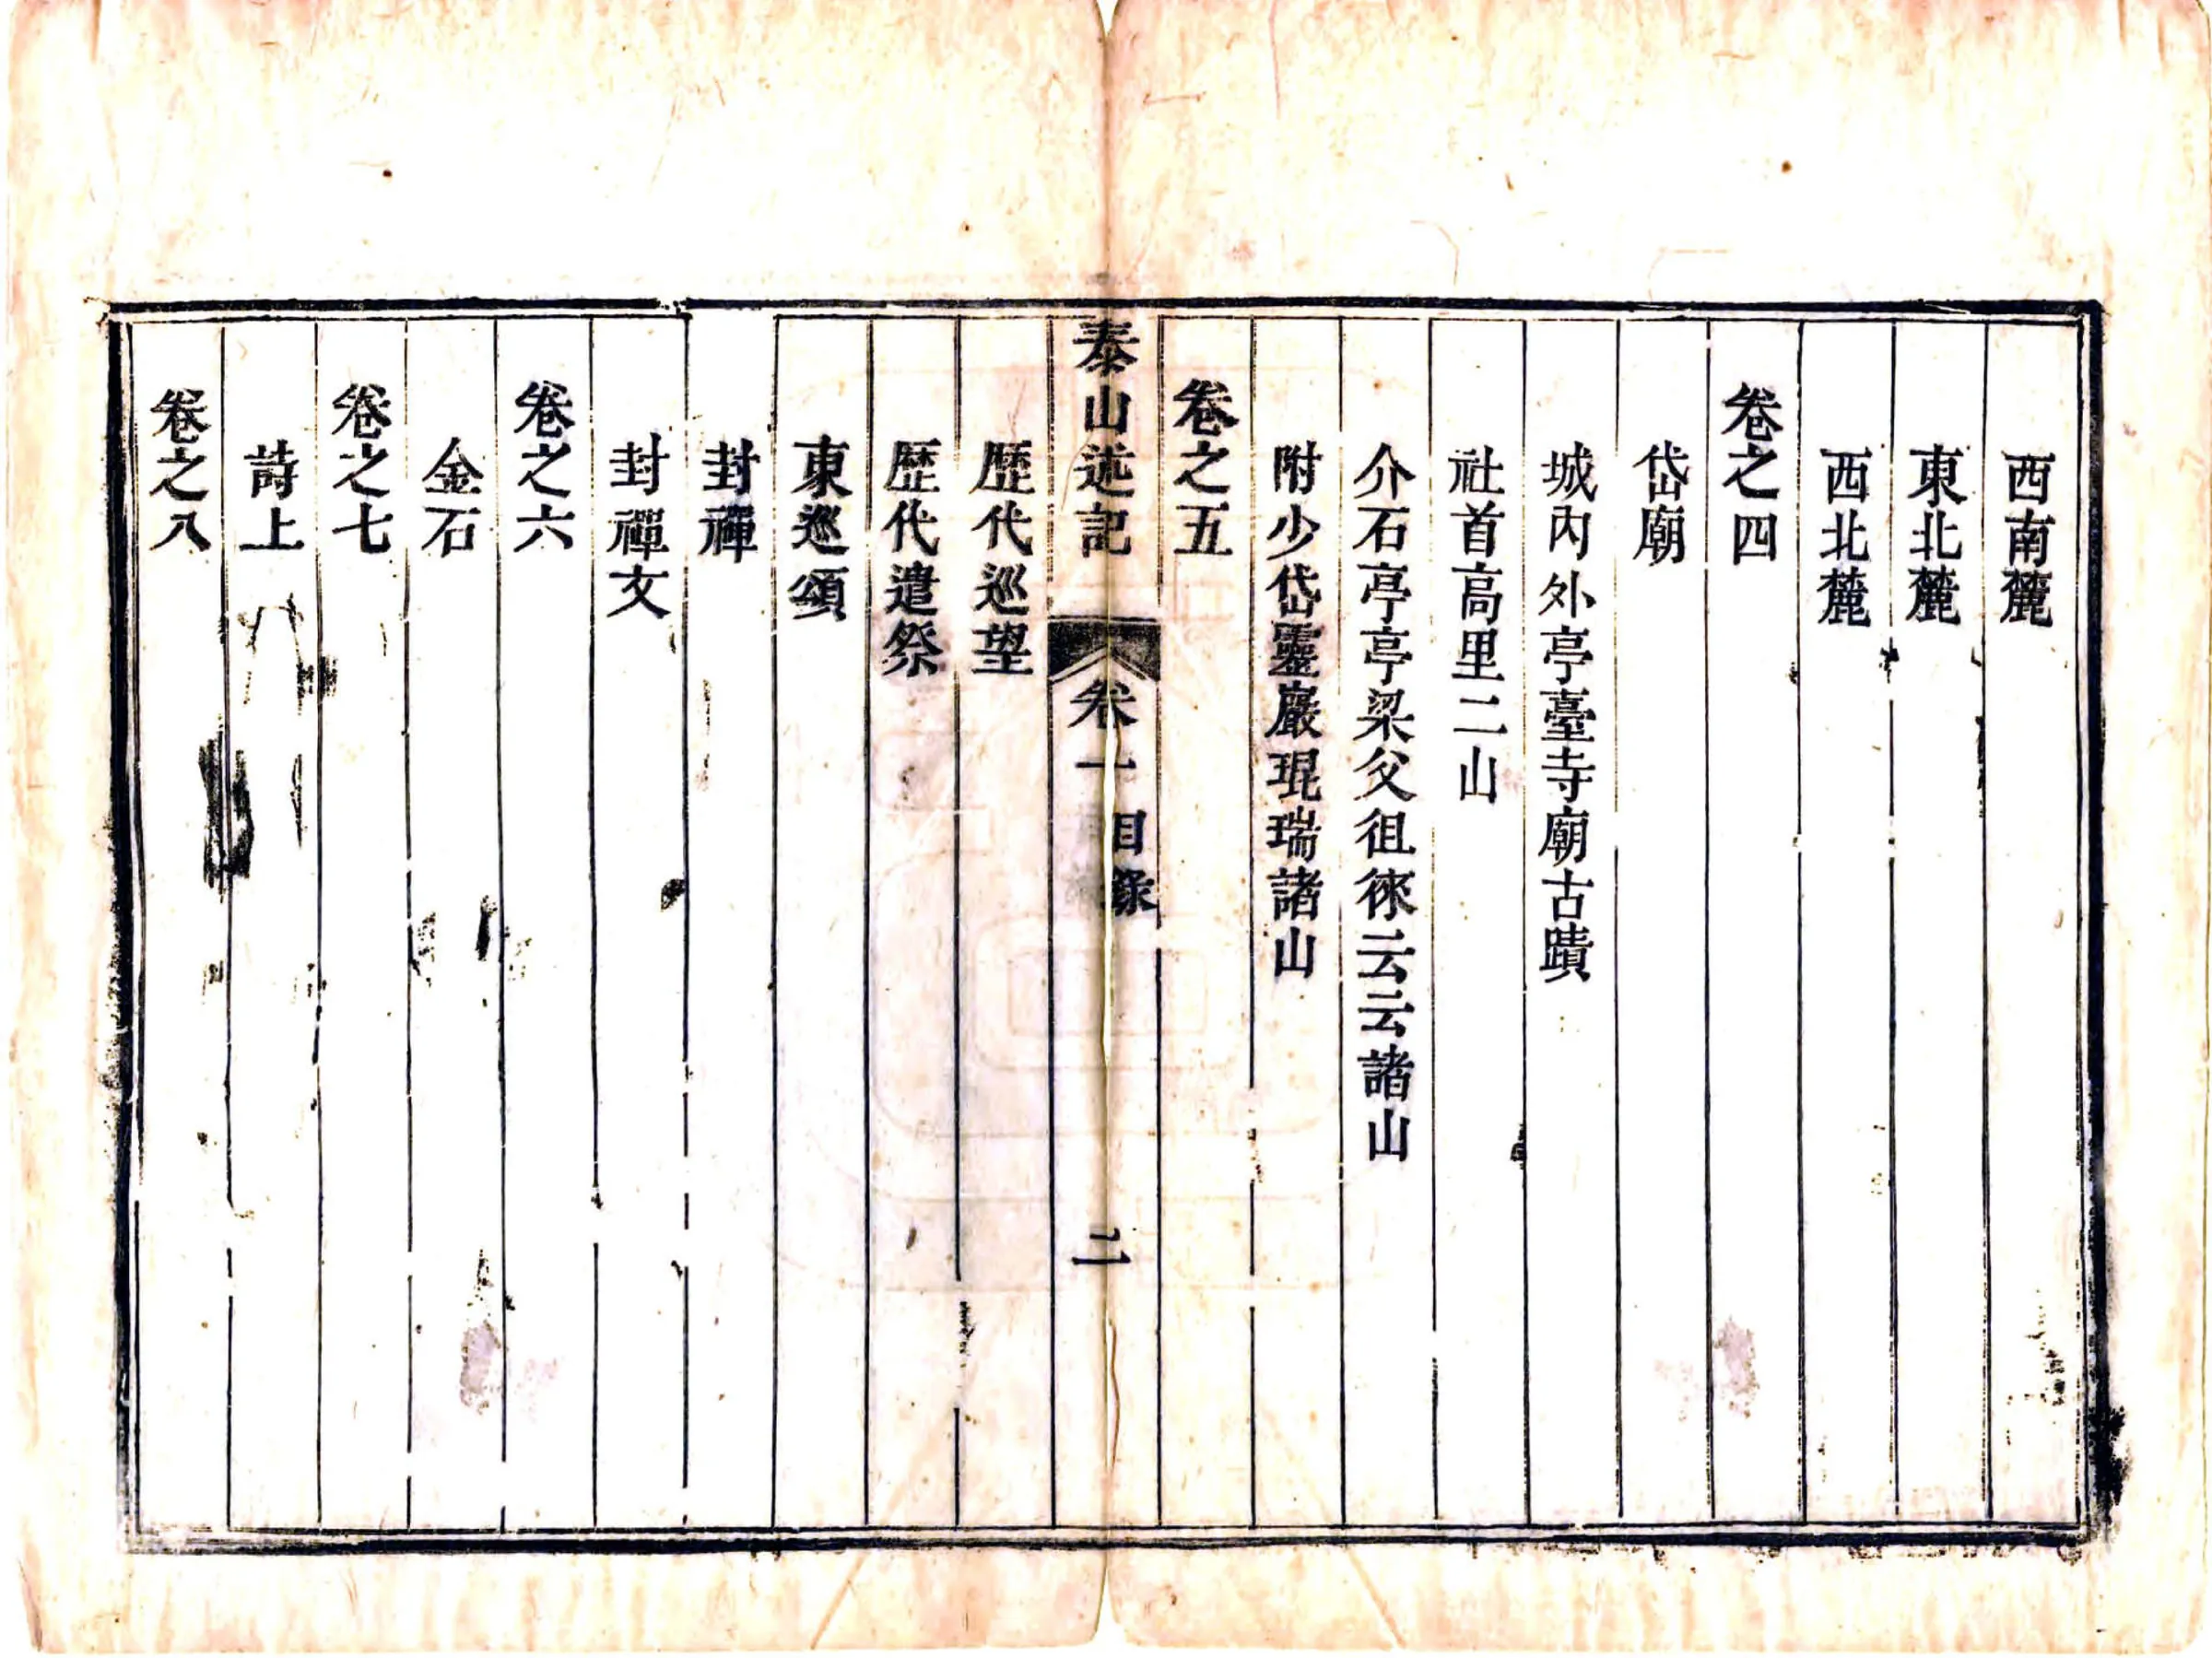 西南麓
東北麓
西北麓
卷之四
岱廟
城內外亭臺寺廟古蹟
社首高里二山
介石亭亭梁父徂徠云云諸山
附少岱靈巖琨瑞諸山
卷之五
泰山述記 卷一 目錄 二
歷代巡望
歷代遣祭
東巡頌
封禪
封禪文
卷之六
金石
卷之七
詩上
卷之八